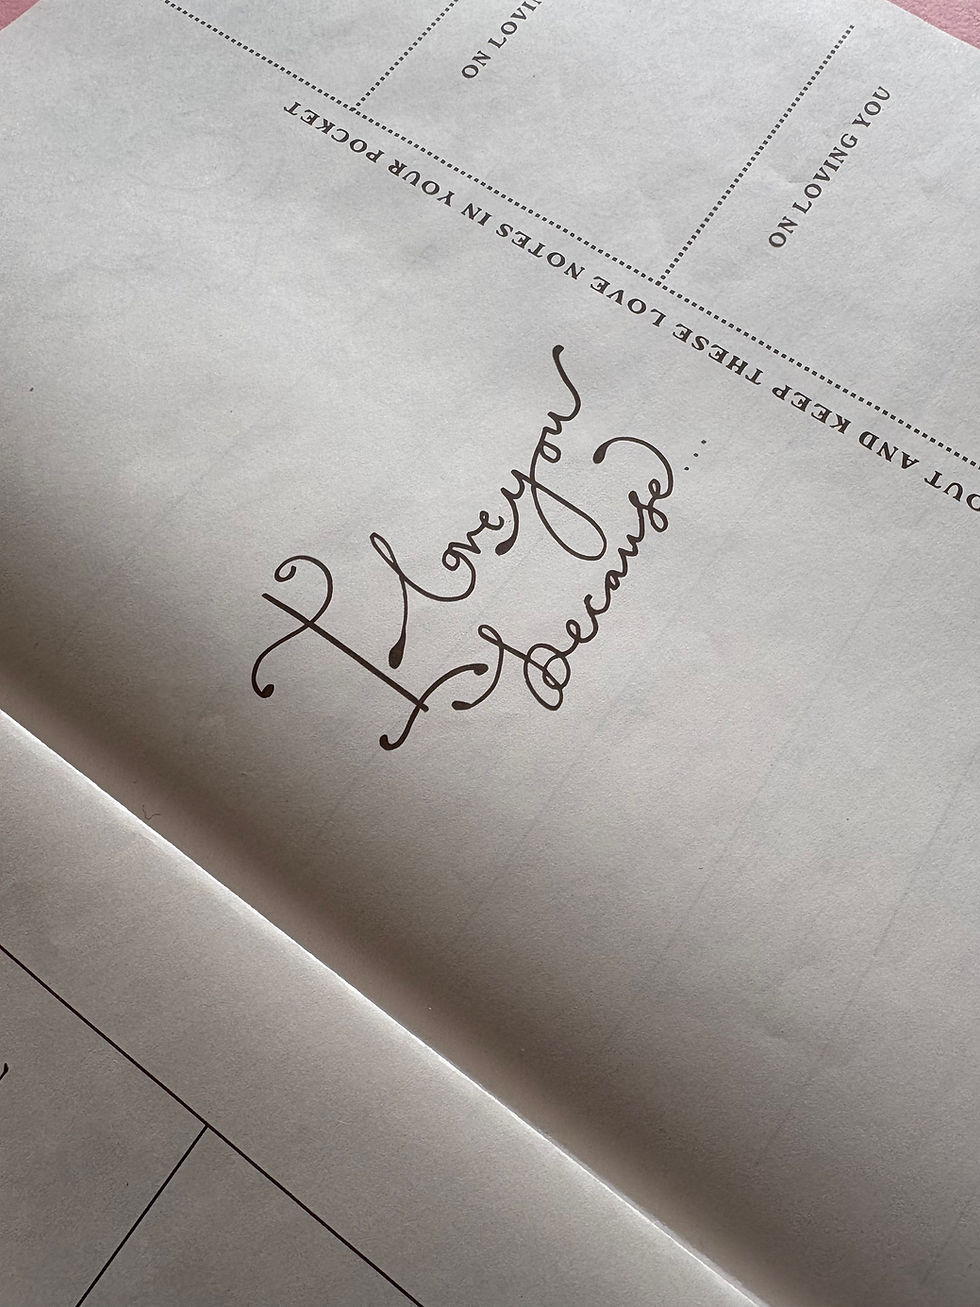 ON LOVI
ON LOVING YOU
OUT AND KEEP THESE LOVE NOTES IN YOUR POCKET
I love you
because...